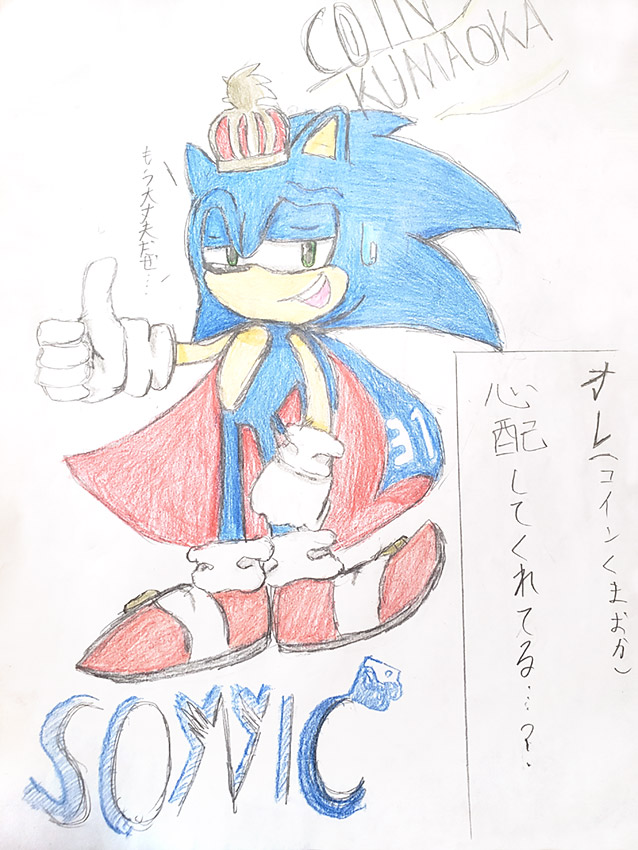 COIN
KUMAOKA
もう大丈夫だぜ…
オレ(コインくまおか)
心配してくれてる…？
31
SONIC